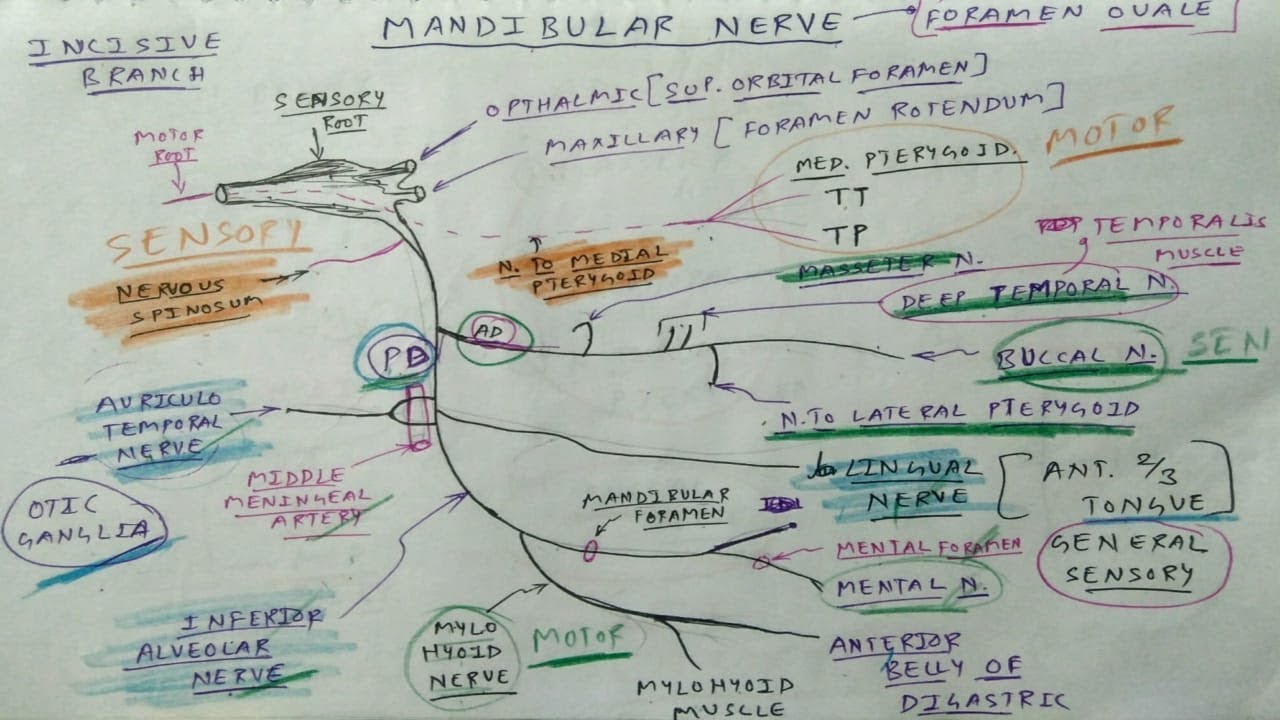 MANDIBULAR NERVE
FORAMEN OVALE
INCISIVE
BRANCH
SENSORY
ROOT
MOTOR
ROOT
OPTHALMIC [SUP. ORBITAL FORAMEN]
MAXILLARY [FORAMEN ROTENDUM]
MOTOR
MED. PTERYGOID.
TT
TP
SENSORY
NERVOUS
SPINOSUM
N. TO MEDIAL
PTERYGOID
MASSETER N.
TEMPORALIS
MUSCLE
DEEP TEMPORAL N.
AD
PD
BUCCAL N.
SEN
N. TO LATERAL PTERYGOID
AURICULO
TEMPORAL
NERVE
MIDDLE
MENINGEAL
ARTERY
OTIC
GANGLIA
LINGUAL
NERVE
ANT. 2/3
TONGUE
GENERAL
SENSORY
MANDIBULAR
FORAMEN
MENTAL FORAMEN
MENTAL N.
INFERIOR
ALVEOLAR
NERVE
MYLO
HYOID
NERVE
MOTOR
MYLOHYOID
MUSCLE
ANTERIOR
BELLY OF
DIGASTRIC